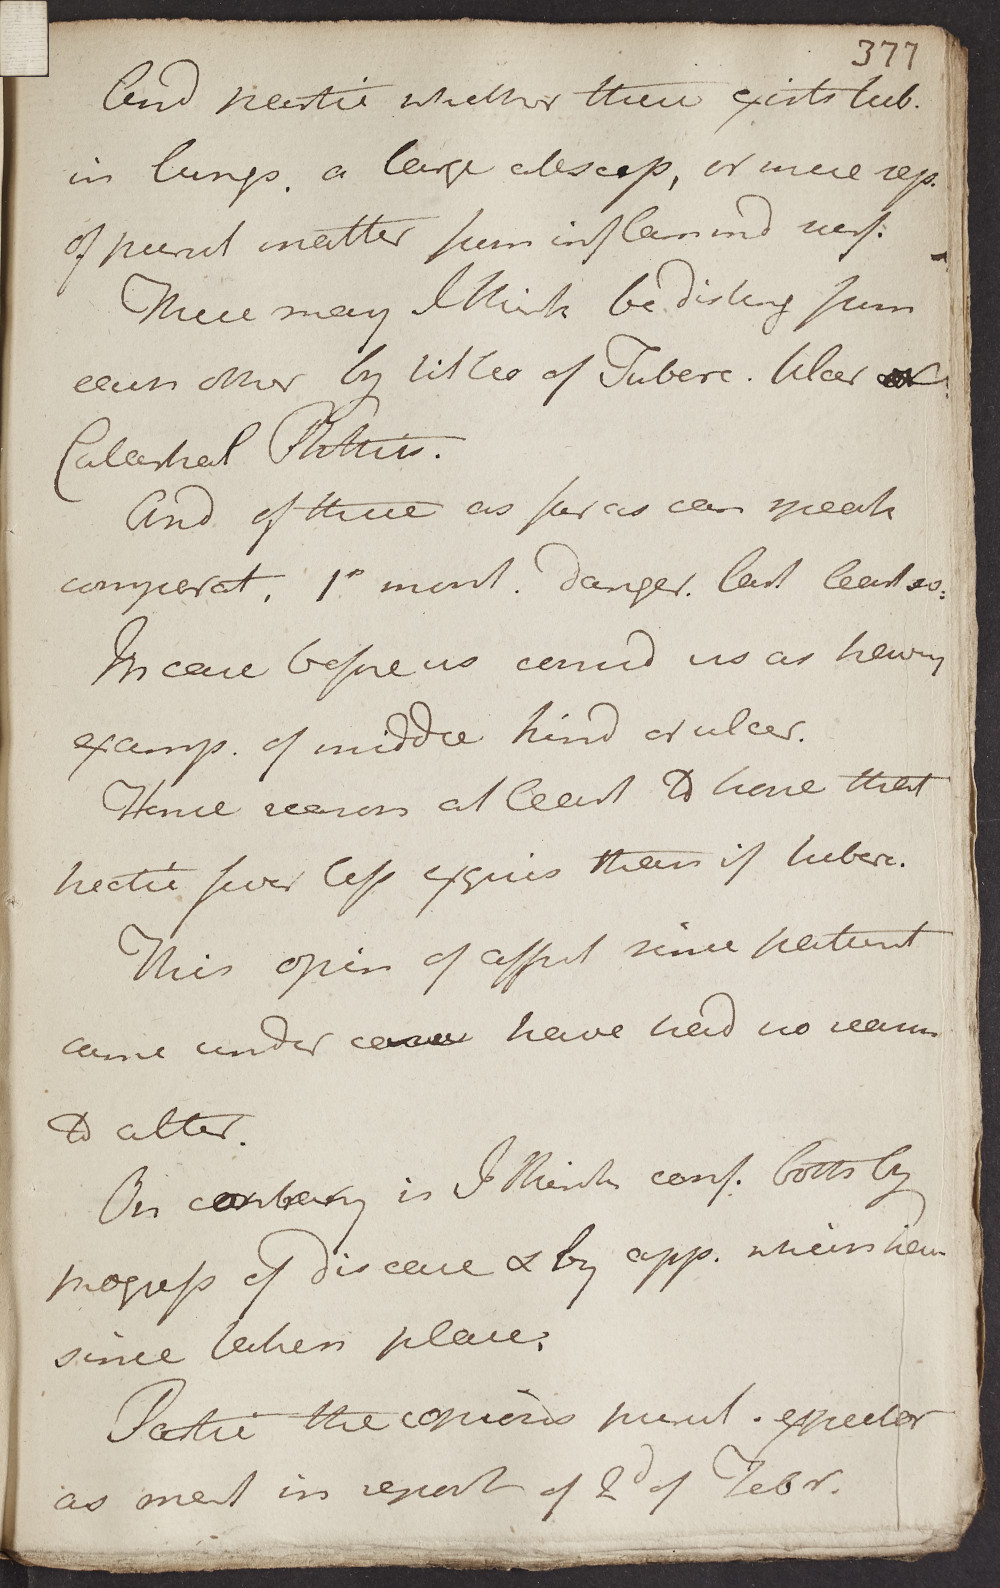 377
And partic whether there exists tub.
in lungs, a large abscess, or mere sep.
of purul matter from inflammd surf.
These may I think be disting from
each other by titles of Tuberc. Ulcer or
Catarrhal Phthisis.
And of these as far as can speak
comparat. 1st most. danger. last least so.
In case before us consid us as having
examp. of middle kind or ulcer.
Hence reason at least to hope that
hectic fever less exquis than if tuberc.
This opin of affect since patient
came under care have had no reason
to alter.
On contrary is I think conf. both by
progress of disease & by app. which have
since taken place.
Partic the copious purul. expector
as ment in report of 2d of Febr.